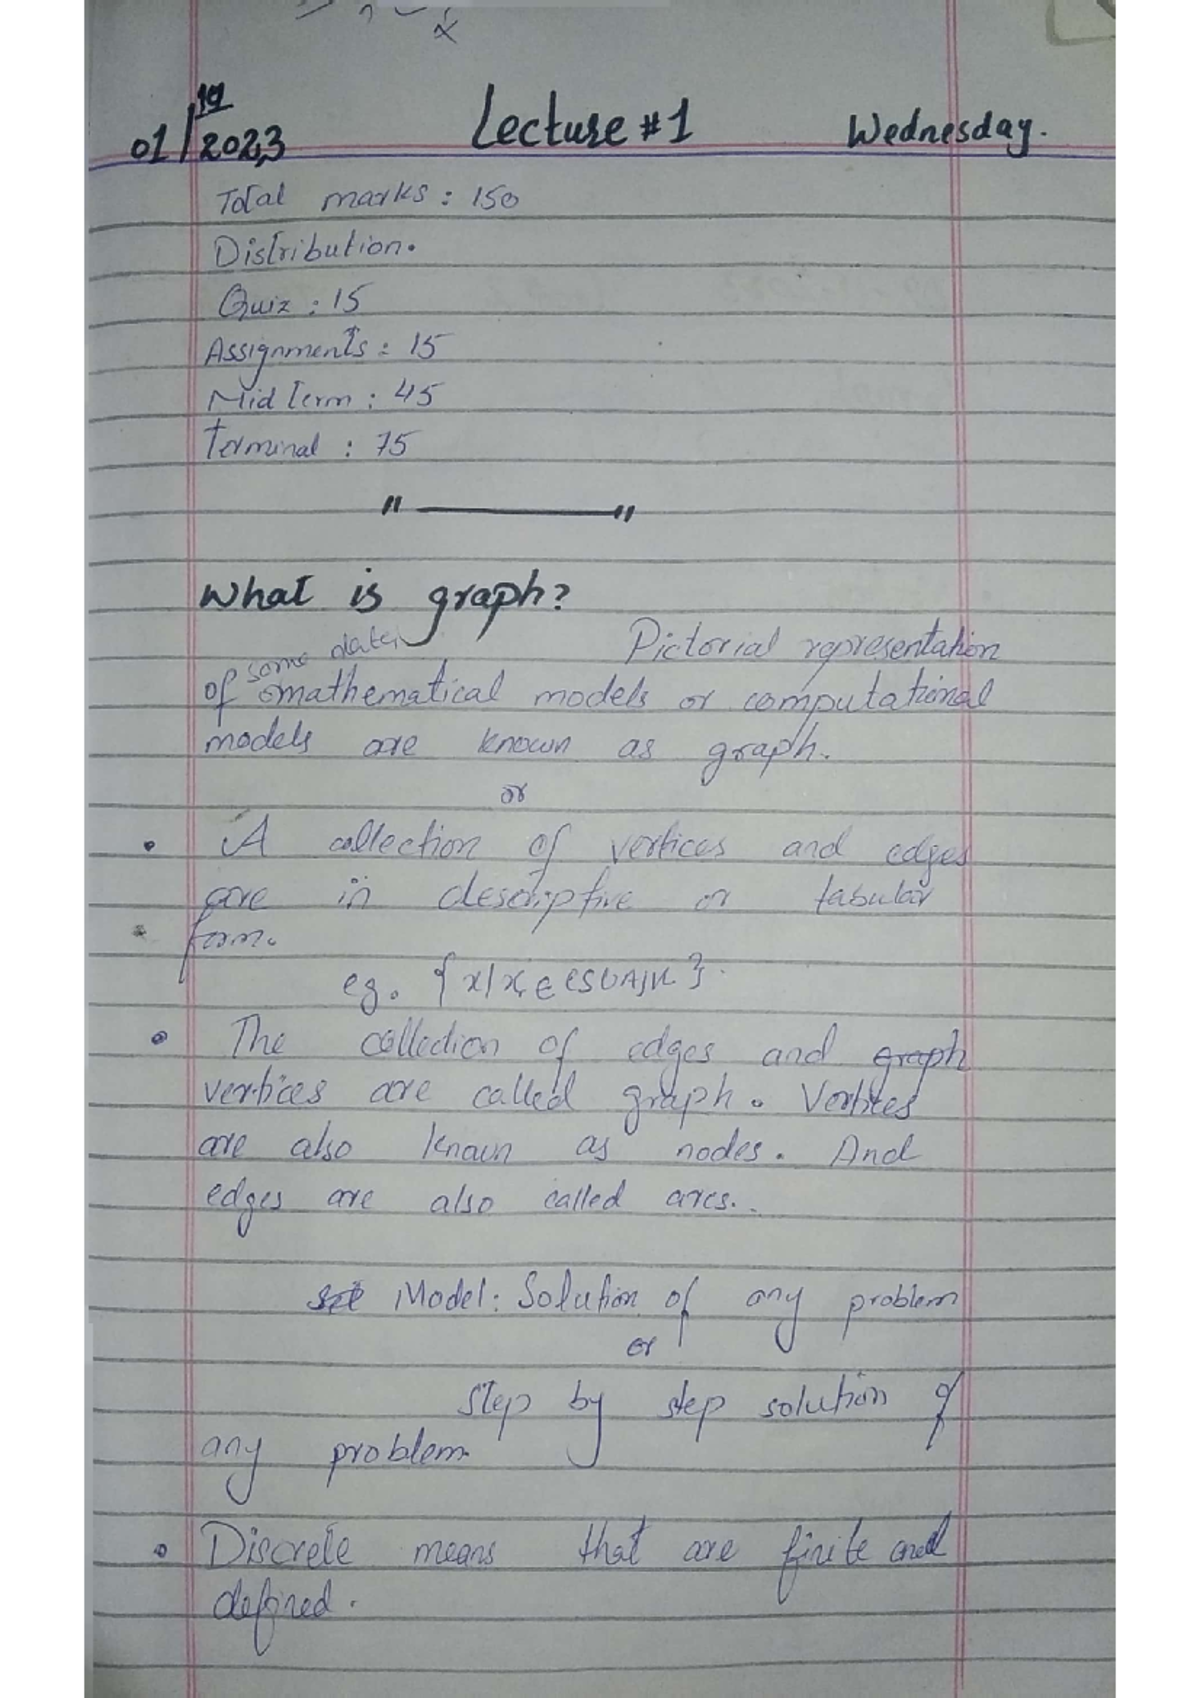 19
01/2023 Lecture #1 Wednesday.
Total marks : 150
Distribution.
Quiz : 15
Assignments : 15
Mid Term : 45
Terminal : 75
" ——— "
What is graph?
Pictorial representation
some data
of mathematical models or computational
models are known as graph.
or
• A collection of vertices and edges
are in descriptive or tabular
form.
eg. { x/x ∈
• The collection of edges and graph
vertices are called graph. Vertices
are also known as nodes. And
edges are also called arcs.
Model: Solution of any problem
or
Step by step solution of
any problem
• Discrete means that are finite and
defined.